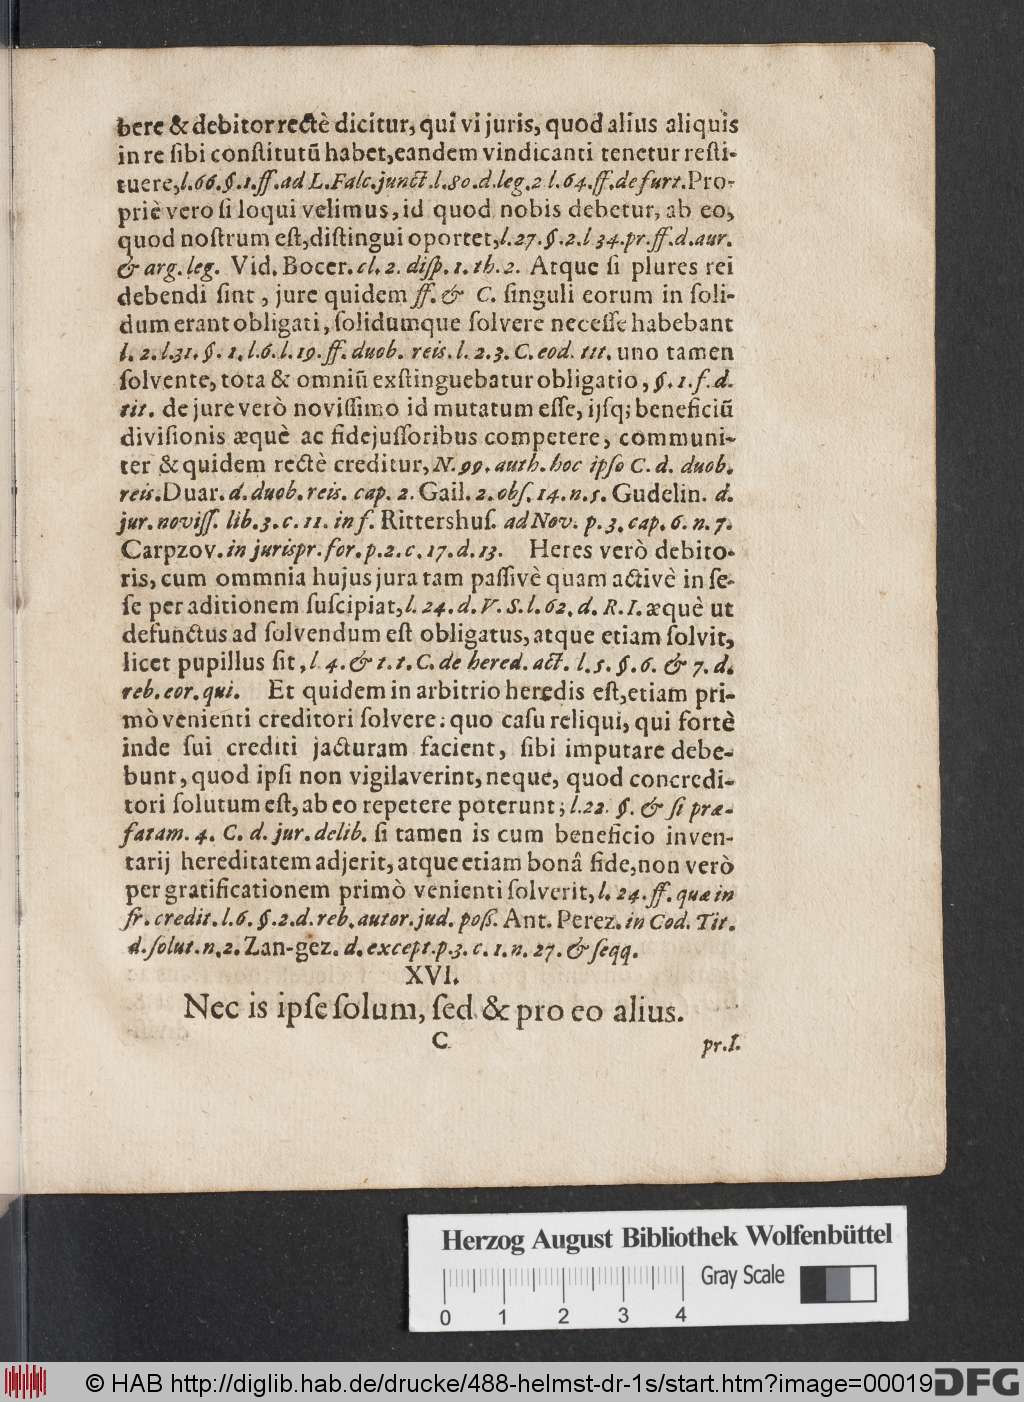 bere & debitor rectè dicitur, qui vi juris, quod alius aliquis
in re ſibi conſtitutũ habet, eandem vindicanti tenetur reſti-
tuere, l. 66. §. 1. ff. ad L. Falc. junct. l. 80. d. leg. 2 l. 64. ff. de furt. Pro-
priè vero ſi loqui velimus, id quod nobis debetur, ab eo,
quod noſtrum eſt, diſtingui oportet, l. 27. §. 2. l 34. pr. ff. d. aur.
& arg. leg. Vid. Bocer. cl. 2. diſp. 1. th. 2. Atque ſi plures rei
debendi ſint, jure quidem ff. & C. ſinguli eorum in ſoli-
dum erant obligati, ſolidumque ſolvere neceſſe habebant
l. 2. l. 31. §. 1. l. 6. l. 19. ff. duob. reis. l. 2. 3. C. eod. tit. uno tamen
ſolvente, tota & omniũ exſtinguebatur obligatio, §. 1. f. d.
tit. de jure verò noviſſimo id mutatum eſſe, ijſq; beneficiũ
diviſionis æquè ac fidejuſſoribus competere, communi-
ter & quidem rectè creditur, N. 99. auth. hoc ipſo C. d. duob.
reis. Duar. d. duob. reis. cap. 2. Gail. 2. obſ. 14. n. 5. Gudelin. d.
jur. noviſſ. lib. 3. c. 11. in f. Rittershuſ. ad Nov. p. 3. cap. 6. n. 7.
Carpzov. in jurispr. for. p. 2. c. 17. d. 13. Heres verò debito-
ris, cum ommnia hujus jura tam paſſivè quam activè in ſe-
ſe per aditionem ſuſcipiat, l. 24. d. V. S. l. 62. d. R. I. æquè ut
defunctus ad ſolvendum eſt obligatus, atque etiam ſolvit,
licet pupillus ſit, l 4. & t. t. C. de hered. act. l. 5. §. 6. & 7. d.
reb. eor. qui. Et quidem in arbitrio heredis eſt, etiam pri-
mò venienti creditori ſolvere: quo caſu reliqui, qui fortè
inde ſui crediti jacturam facient, ſibi imputare debe-
bunt, quod ipſi non vigilaverint, neque, quod concredi-
tori ſolutum eſt, ab eo repetere poterunt; l. 22. §. & ſi præ-
fatam. 4. C. d. jur. delib. ſi tamen is cum beneficio inven-
tarij hereditatem adjerit, atque etiam bonâ fide, non verò
per gratificationem primò venienti ſolverit, l. 24. ff. quæ in
fr. credit. l. 6. §. 2. d. reb. autor. jud. poß. Ant. Perez. in Cod. Tit.
d. ſolut. n. 2. Zan-gez. d. except. p. 3. c. 1. n. 27. & ſeqq.
XVI.
Nec is ipſe ſolum, ſed & pro eo alius.
C
pr. I.
Herzog August Bibliothek Wolfenbüttel
Gray Scale
0 1 2 3 4
© HAB http://diglib.hab.de/drucke/488-helmst-dr-1s/start.htm?image=00019
DFG